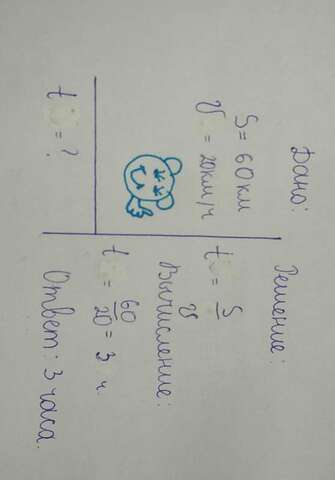 Дано:
S = 60 км
V = 20 км/ч
t = ?
Решение:
t = S/V
Вычисление:
t = 60/20 = 3 ч.
Ответ: 3 часа.